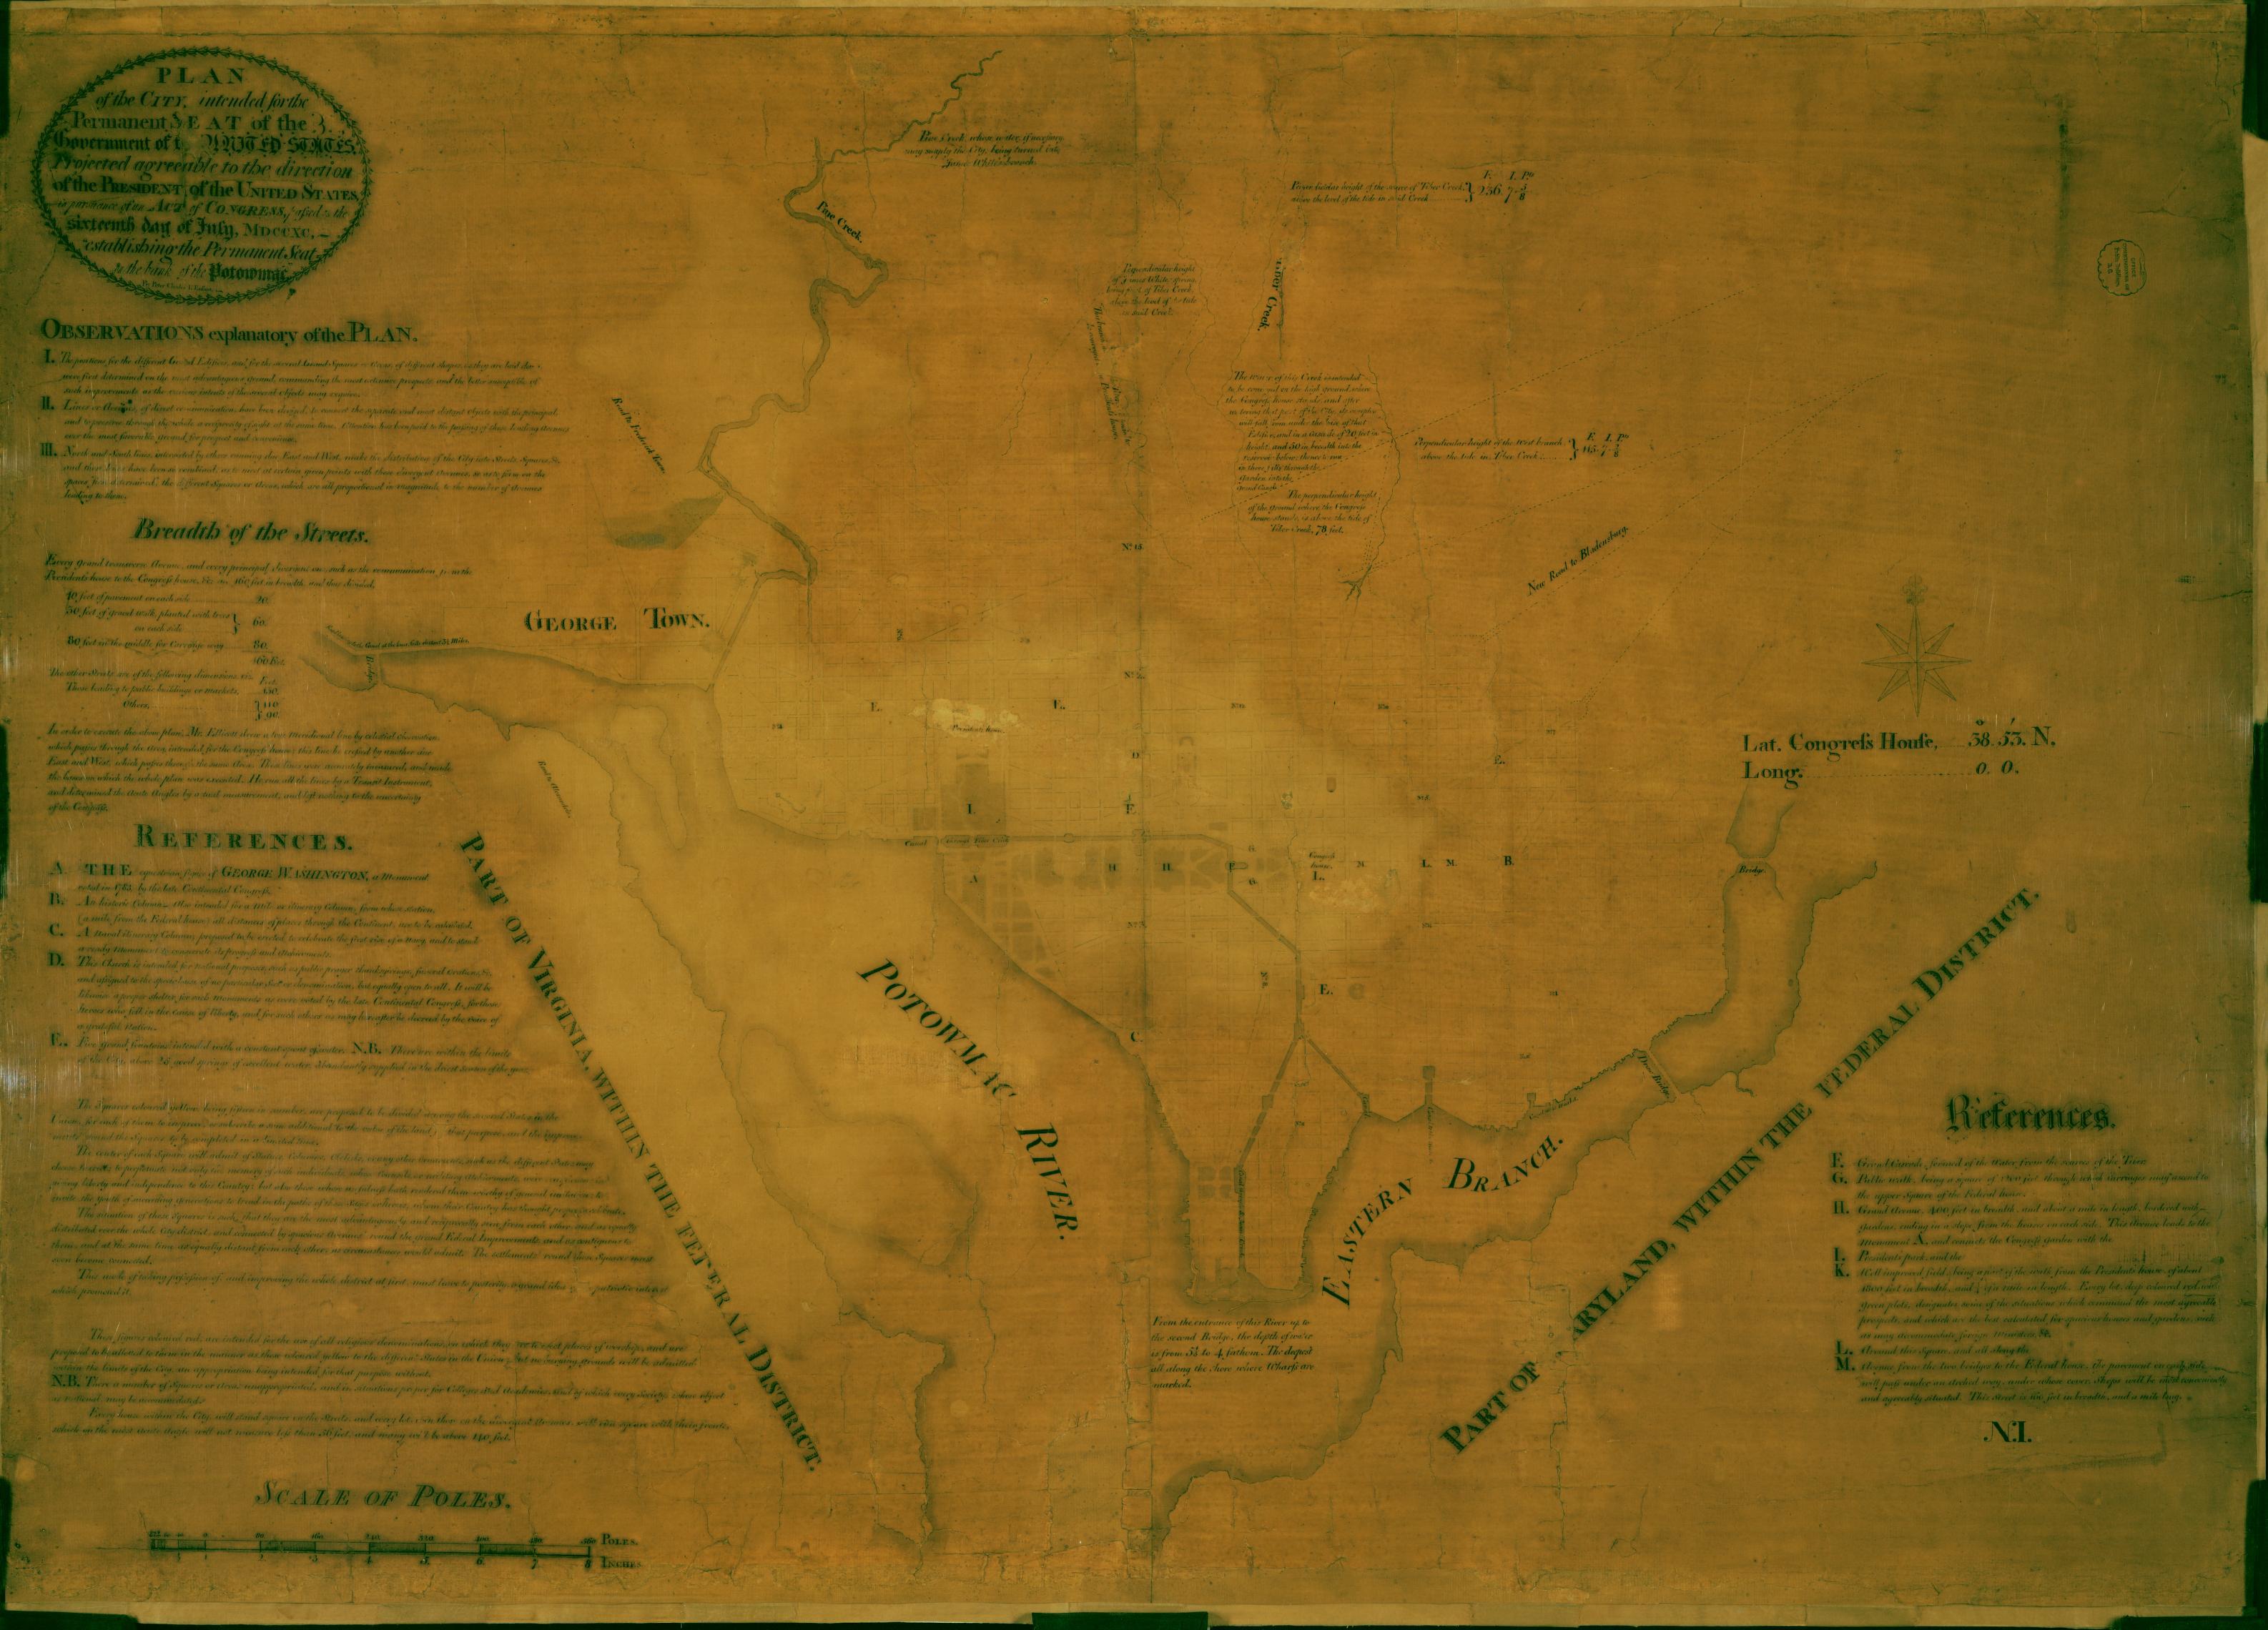 PLAN
of the CITY, intended for the
Permanent SEAT of the
Government of t UNITED STATES,
Projected agreeable to the direction
of the PRESIDENT of the UNITED STATES,
in pursuance of an ACT of CONGRESS, passed the
sixteenth day of July, MDCCXC,
establishing the Permanent Seat
on the bank of the Potowmac
By Peter Charles L'Enfant
OBSERVATIONS explanatory of the PLAN.
I. The positions for the different Grand Edifices, and for the several Grand Squares or Areas of different shapes as they are laid down,
were first determined on the most advantageous ground, commanding the most extensive prospects, and the better susceptible of
such improvements as the various intents of the several objects may require.
II. Lines or Avenues, of direct communication have been devised, to connect the separate and most distant objects with the principal
and to preserve through the whole a reciprocity of sight at the same time. Attention has been paid to the passing of those leading Avenues
over the most favorable ground for prospect and convenience.
III. North and South lines, intersected by others running due East and West, make the distribution of the City into Streets, Squares, &c.
and those lines have been so combined, as to meet at certain given points with those divergent Avenues, so as to form on the
spaces first determined, the different Squares or Areas, which are all proportional in magnitude to the number of Avenues
leading to them.
Breadth of the Streets.
Every grand transverse Avenue, and every principal divergent one, such as the communication from the
President's house to the Congress house, &c. are 160 feet in breadth, and thus divided,
10 feet of pavement on each side 20.
30 feet of gravel walk, planted with trees
on each side } 60.
80 feet in the middle for Carriage way 80.
160 Feet.
The other Streets are of the following dimensions, viz. Feet.
Those leading to public buildings or markets, 130.
Others, } 110
90.
In order to execute the above plan, Mr. Ellicott drew a true Meridional line by celestial observation,
which passes through the Area intended for the Congress house; this line he crossed by another due
East and West, which passes through the same Area. These lines were accurately measured, and made
the bases on which the whole plan was executed. He ran all the lines by a Transit Instrument,
and determined the Acute Angles by actual measurement, and left nothing to the uncertainty
of the Compass.
REFERENCES.
A. THE equestrian figure of GEORGE WASHINGTON, a Monument
voted in 1783, by the late Continental Congress.
B. An historic Column. Also intended for a Mile or itinerary Column, from whose station,
(a mile from the Federal house) all distances of places through the Continent, are to be calculated.
C. A Naval itinerary Column, proposed to be erected to celebrate the first rise of a Navy, and to stand
a ready Monument to consecrate its progress and Atchievements.
D. This Church is intended for national purposes, such as public prayer, thanksgivings, funeral Orations, &c.
and assigned to the special use of no particular Sect or denomination, but equally open to all. It will be
likewise a proper shelter for such Monuments as were voted by the late Continental Congress, for those
heroes who fell in the cause of liberty, and for such others as may hereafter be decreed by the voice of
a grateful Nation.
E. Five grand fountains, intended with a constant spout of water. N.B. There are within the limits
of the City, above 25 good springs of excellent water, abundantly supplied in the driest season of the year.
The Squares coloured yellow, being fifteen in number, are proposed to be divided among the several States in the
Union, for each of them to improve, or subscribe a sum additional to the value of the land; that purpose, and the improve-
ments round the Squares to be completed in a limited time.
The center of each Square will admit of Statues, Columns, Obelisks, or any other ornaments, such as the different States may
choose to erect: to perpetuate not only the memory of such individuals whose Counsels or military Atchievements, were conspicuous in
giving liberty and independence to this Country; but also those whose usefulness hath rendered them worthy of general imitation: to
invite the youth of succeeding generations to tread in the paths of those Sages or heroes, whom their Country has thought proper to celebrate.
The situation of these Squares is such, that they are the most advantageously and reciprocally seen from each other, and as equally
distributed over the whole City district, and connected by spacious Avenues round the grand Federal Improvements, and as contiguous to
them, and at the same time as equally distant from each other, as circumstances would admit. The settlements round those Squares must
soon become connected.
This mode of taking possession of, and improving the whole district at first, must leave to posterity a grand idea patriotic interest
which promoted it.
Those figures coloured red, are intended for the use of all religious denominations, on which they are to erect places of worship, and are
proposed to be allotted to them in the manner as those coloured yellow to the different States in the Union; but no burying grounds will be admitted
within the limits of the City, an appropriation being intended for that purpose without.
N.B. There a number of Squares or Areas unappropriated, and in situations proper for Colleges and Academies, and of which every Society, whose object
is national, may be accommodated.
Every house within the City, will stand square on the Streets, and every lot, even those on the divergent Avenues, will run square with their fronts,
which on the most acute Angle will not measure less than 56 feet, and many will be above 140 feet.
SCALE OF POLES.
POLES.
INCHES
Road to Frederick Town.
GEORGE TOWN.
Bridge
Road to Alexandria
PART OF VIRGINIA, WITHIN THE FEDERAL DISTRICT.
Pine Creek, whose water, if necessary
may supply the City, being turned into
James White's branch.
Pine Creek.
Perpendicular height
of James White's spring
being part of Tiber Creek,
above the level of the tide
in said Creek.
Tiber Creek.
Perpendicular height of the source of Tiber Creek,
above the level of the tide in said Creek } F. I. Pts
236. 7. 5/8
The water of this Creek is intended
to be conveyed on the high ground, where
the Congress house stands, and after
watering that part of the City, its overplus
will fall from under the base of that
Edifice, and in a Cascade of 20 feet in
height, and 50 in breadth, into the
reservoir below; thence to run
in three fills through the
Garden into the
grand Canal.
The perpendicular height
of the ground where the Congress
house stands, is above the tide of
Tiber Creek, 78 feet.
Perpendicular height of the West branch
above the tide in Tiber Creek } F. I. Pts
115. 7. 2/8
New Road to Bladensburg.
President's house
E. E. D. E.
I. E.
Canal through Tiber Creek
A H. H. F. G. L. M. B.
Congress house
L.
E.
C.
POTOWMAC RIVER.
EASTERN BRANCH.
From the entrance of this River up to
the second Bridge, the depth of water
is from 3½ to 4 fathom. The deepest
all along the shore where Wharfs are
marked.
Lat. Congress House, 38. 53. N.
Long. 0. 0.
Bridge.
PART OF ARYLAND, WITHIN THE FEDERAL DISTRICT.
References.
F. Grand Cascade, formed of the water from the sources of the Tiber.
G. Public walk, being a square of 1200 feet, through which carriages may ascend to
the upper Square of the Federal house.
H. Grand Avenue, 400 feet in breadth, and about a mile in length, bordered with
gardens, ending in a slope from the houses on each side. This Avenue leads to the
Monument A, and connects the Congress Garden with the
I. Presidents park, and the
K. Well improved field, being a part of the walk from the Presidents house, of about
1800 feet in breadth, and ¾ of a mile in length. Every lot, deep coloured red with
green plots, designates some of the situations which command the most agreeable
prospects, and which are the best calculated for spacious houses and gardens, such
as may accommodate foreign Ministers, &c.
L. Around this Square, and all along the
M. Avenue from the two bridges to the Federal house, the pavement on each side
will pass under an Arched way, under whose cover, Shops will be most conveniently
and agreeably situated. This Street is 160 feet in breadth, and a mile long.
N.I.